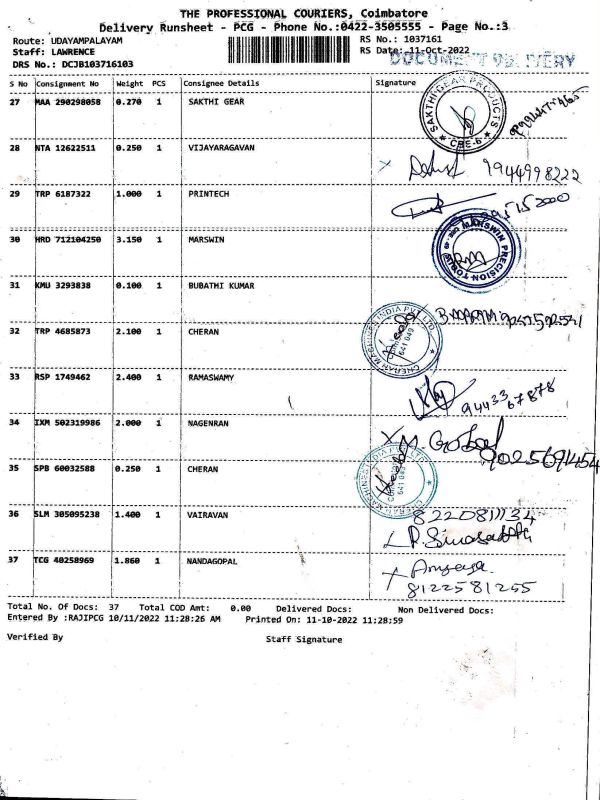 THE PROFESSIONAL COURIERS, Coimbatore
Delivery Runsheet - PCG - Phone No.:0422-3505555 - Page No.:3
Route: UDAYAMPALAYAM RS No.: 1037161
Staff: LAWRENCE RS Date: 11-Oct-2022
DOCUMENT DELIVERY
DRS No.: DCJB103716103
S No Consignment No Weight PCS Consignee Details Signature
27 MAA 290298058 0.270 1 SAKTHI GEAR
SAKTHI GEAR PRODUCTS
CBE-6
28 NTA 12622511 0.250 1 VIJAYARAGAVAN
9944998222
29 TRP 6187322 1.000 1 PRINTECH
30 HRD 712104250 3.150 1 MARSWIN
MARSWIN PRECISION
31 KMU 3293838 0.100 1 BUBATHI KUMAR
32 TRP 4685873 2.100 1 CHERAN
CHERAN MACHINES INDIA PVT LTD
641 049
33 RSP 1749462 2.400 1 RAMASWAMY
9443367878
34 IXM 502319986 2.000 1 NAGENRAN
M. Gopal
9025691454
35 SPB 60032588 0.250 1 CHERAN
CHERAN MACHINES INDIA PVT LTD
641 049
36 SLM 305095238 1.400 1 VAIRAVAN
8220811134
37 TCG 40258969 1.860 1 NANDAGOPAL
8122581255
Total No. Of Docs: 37 Total COD Amt: 0.00 Delivered Docs: Non Delivered Docs:
Entered By :RAJIPCG 10/11/2022 11:28:26 AM Printed On: 11-10-2022 11:28:59
Verified By Staff Signature